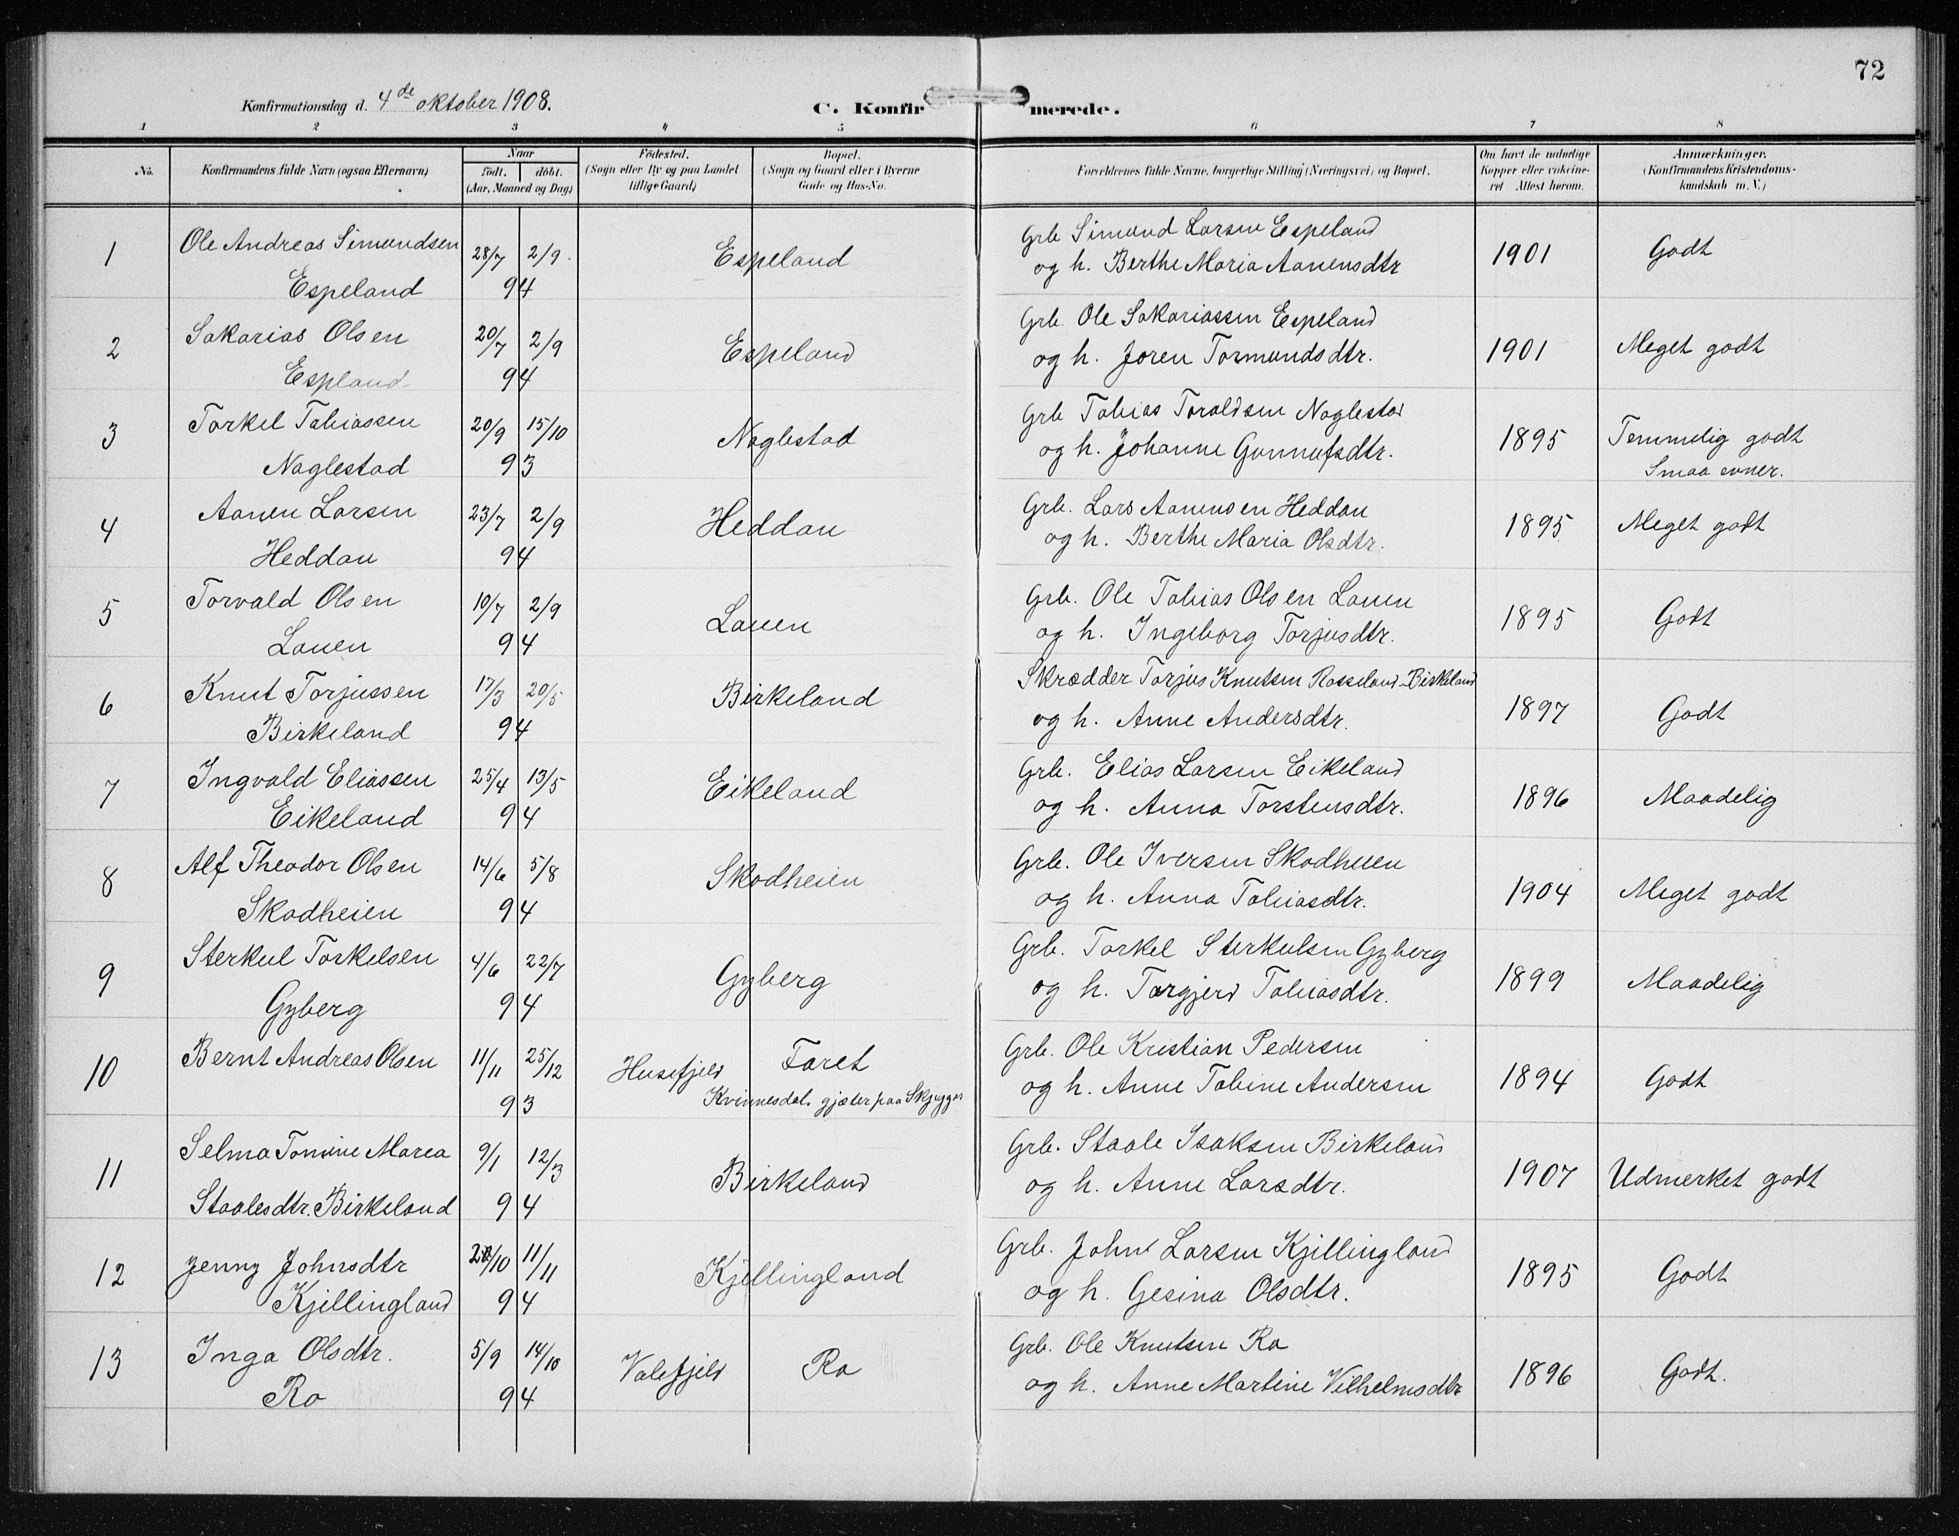 72
Konfirmationsdag d. 4de oktober 1908.
C. Konfir merede.
1 2 3 4 5 6 7 8
No.
Konfirmandens fulde Navn (ogsaa Efternavn)
Naar
født. døbt.
(Aar, Maaned og Dag)
Fødested.
(Sogn eller By og paa Landet
tillige Gaard)
Bopæl.
(Sogn og Gaard eller i Byerne
Gade og Hus-No.
Forældrenes fulde Navne, borgerlige Stilling (Næringsvei) og Bopæl.
Om havt de naturlige
Kopper eller vakcine-
ret Attest herom.
Anmærkninger.
(Konfirmandens Kristendoms-
kundskab m. V.)
1 Ole Andreas Simundsen 28/7 2/9 Espeland Grb Simund Larsen Espeland 1901 Godt
Espeland 94 og h. Berthe Maria Aanensdtr
2 Sakarias Olsen 20/7 2/9 Espeland Grb. Ole Sakariassen Espeland 1901 Meget godt
Espland 94 og h. Joren Tormundsdtr.
3 Torkel Tobiassen 20/9 15/10 Naglestad Grb Tobias Toraldsen Naglestad 1895 Temmelig godt
Naglestad 93 og h. Johanne Gunnufsdtr. Smaa evner.
4 Aanen Larsen 23/7 2/9 Heddan Grb. Lars Aanensen Heddan 1895 Meget godt
Heddan 94 og h. Berthe Maria Olsdtr.
5 Torvald Olsen 10/7 2/9 Lauen Grb. Ole Tobias Olsen Lauen 1895 Godt
Lauen 94 og h. Ingeborg Torjusdtr.
6 Knut Torjussen 17/3 20/5 Birkeland Skrædder Torjus Knutsen Rosseland-Birkeland 1897 Godt
Birkeland 94 og h. Anne Andersdtr.
7 Ingvald Eliassen 25/4 13/5 Eikeland Grb. Elias Larsen Eikeland 1896 Maadelig
Eikeland 94 og h. Anna Torstensdtr.
8 Alf Theodor Olsen 14/6 5/8 Skodheien Grb. Ole Iversen Skodheien 1904 Meget godt
Skodheien 94 og h. Anna Tobiasdtr.
9 Sterkul Torkelsen 4/6 22/7 Gyberg Grb. Torkel Sterkulsen Gyberg 1899 Maadelig
Gyberg 94 og h. Torgjerd Tobiasdtr.
10 Bernt Andreas Olsen 11/11 25/12 Husefjeld Faret Grb. Ole Kristian Pedersen 1894 Godt
93 Kvinnesdal. gjæter paa og h. Anne Tobine Andersen
11 Selma Tomine Marea 9/1 12/3 Birkeland Grb. Staale Isaksen Birkeland 1907 Udmerket godt
Staalesdtr. Birkeland 94 og h. Anne Larsdtr.
12 Jenny Johnsdtr /10 11/11 Kjellingland Grb. John Larsen Kjillingland 1895 Godt
Kjillingland 94 og h. Gesina Olsdtr.
13 Inga Olsdtr. 5/9 14/10 Valefjeld Ro Grb. Ole Knutsen Ro 1896 Godt.
Ro 94 og h. Anne Martine Vilhelmsdtr